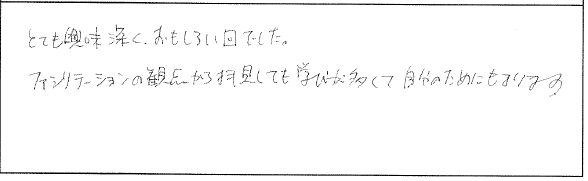 とても興味深く、おもしろい回でした。
ファシリテーションの観点から拝見しても学びが多くて自分のためにもなります